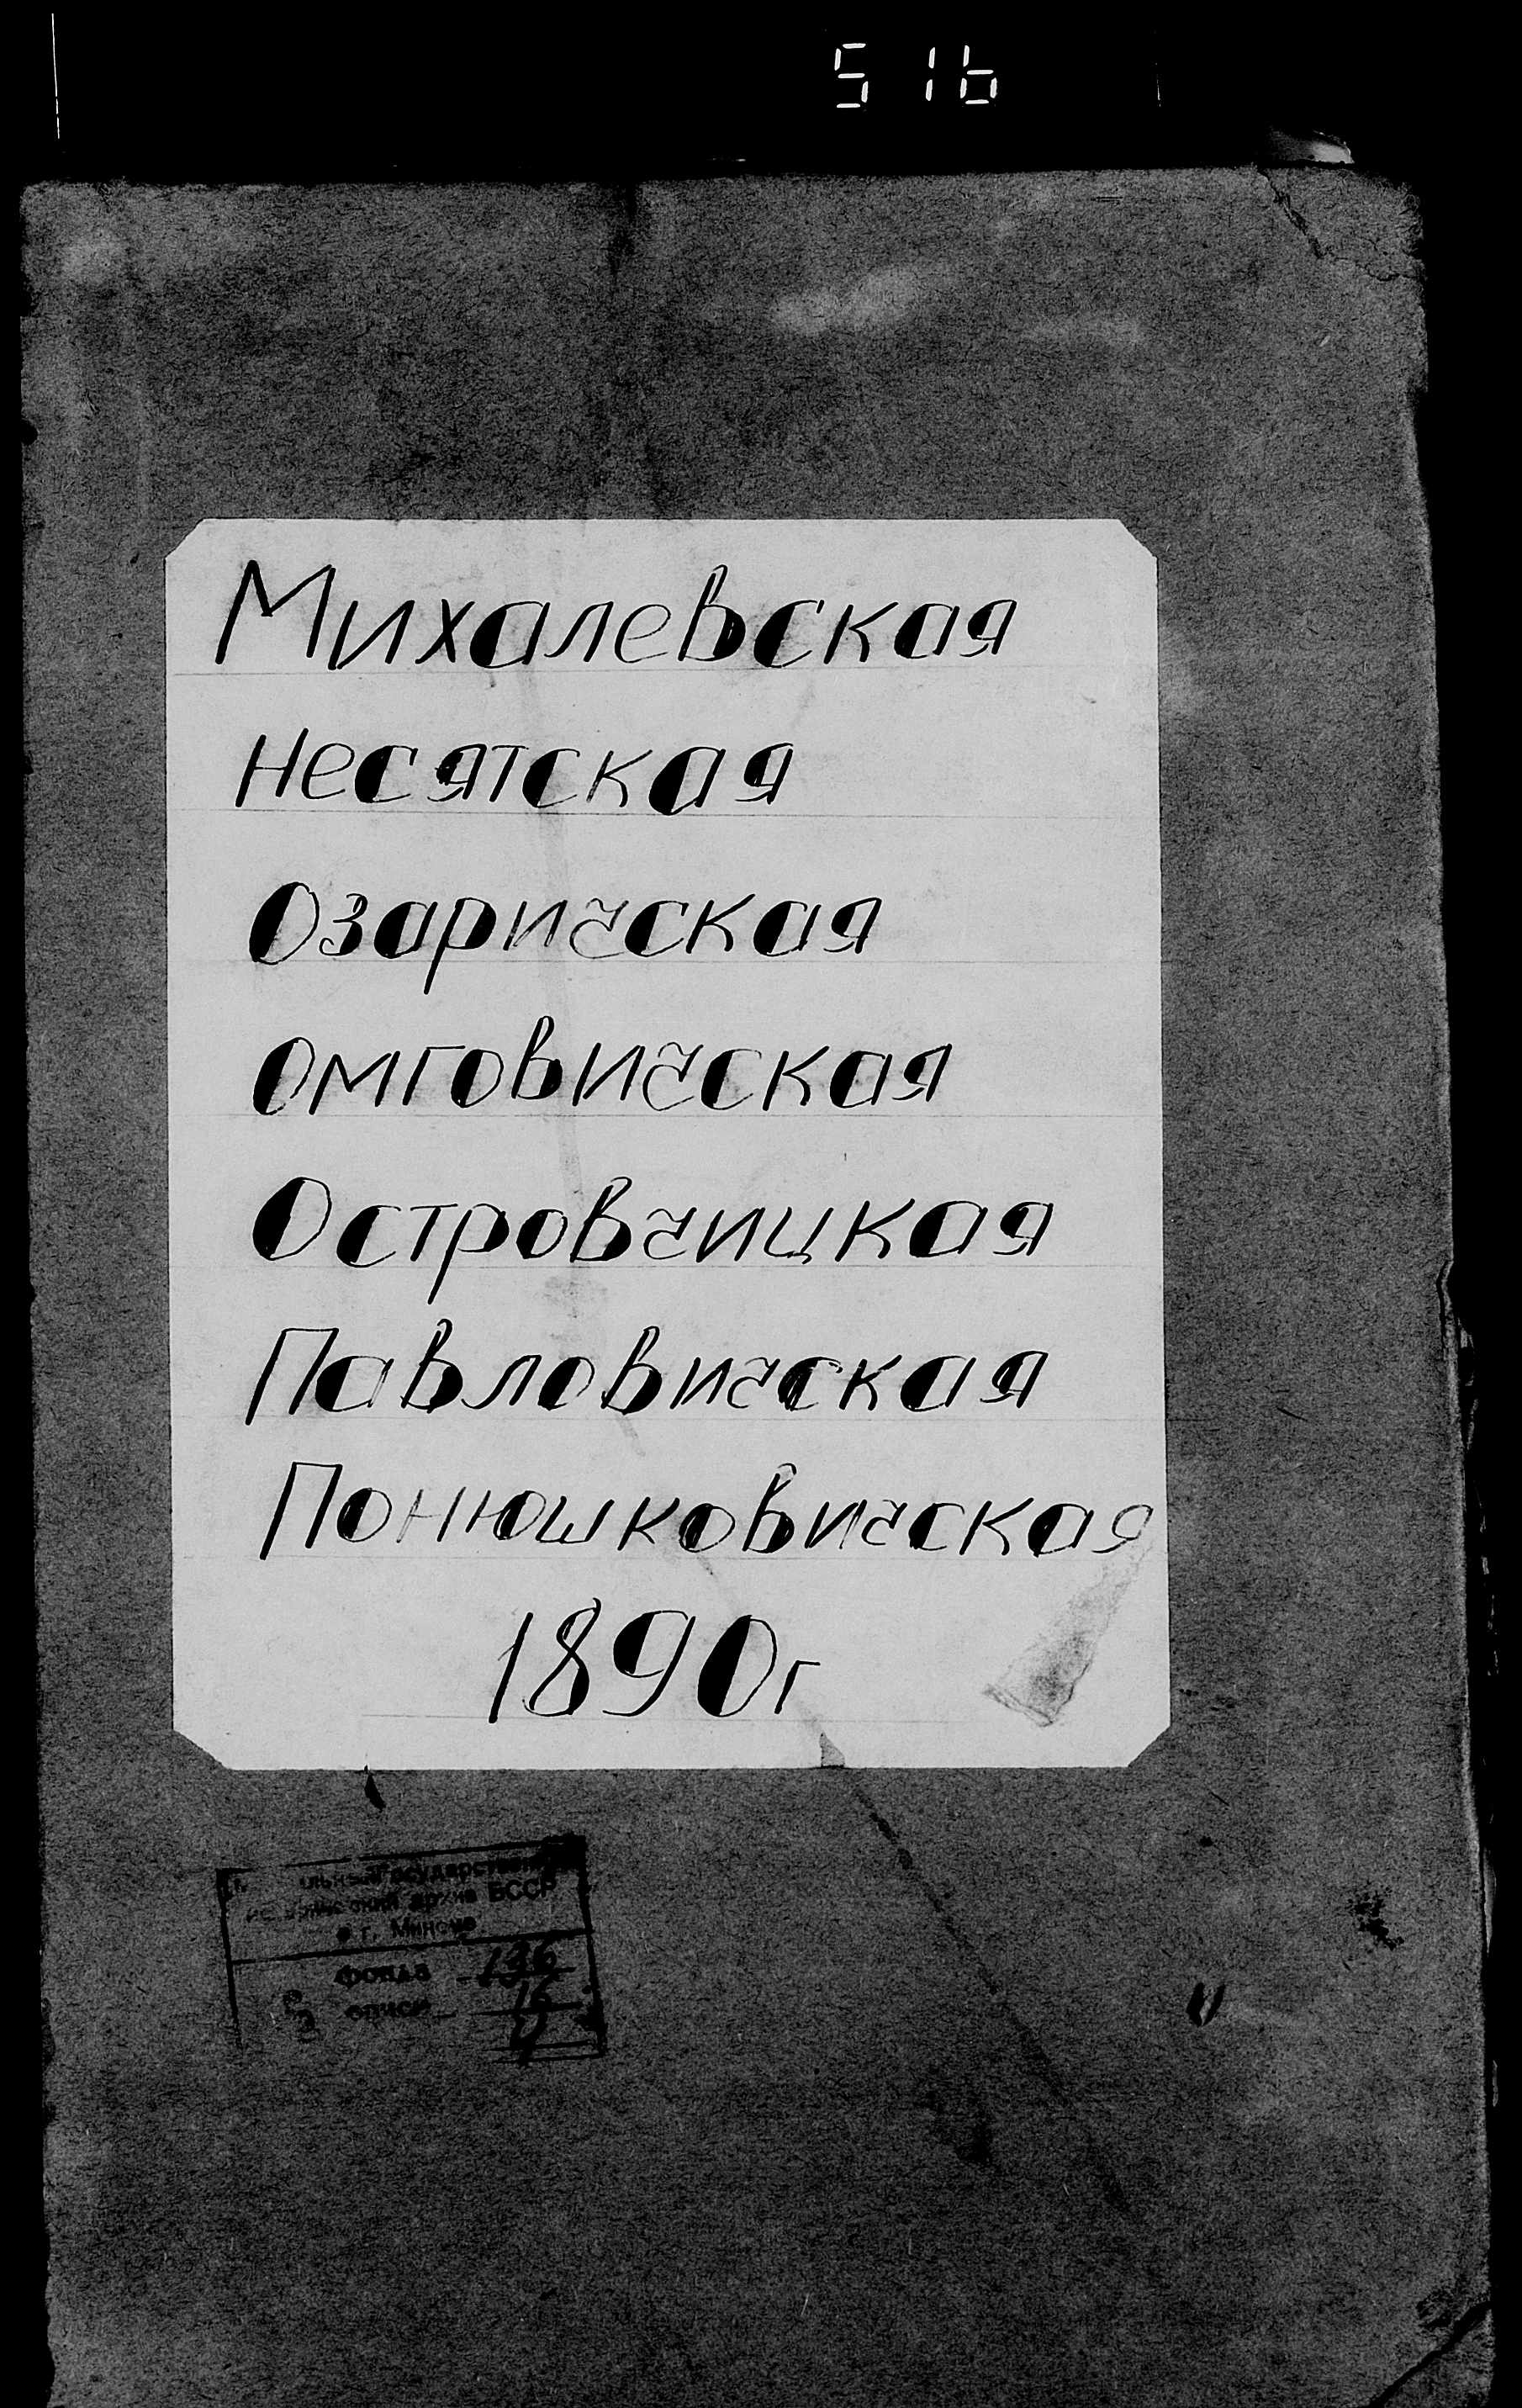 516
Михалевская
Несятская
Озаричская
Омговичская
Островчицкая
Павловичская
Понюшковичская
1890г
Государственный
архив БССР
в г. Минске
ФОНДА 136
ОПИСИ